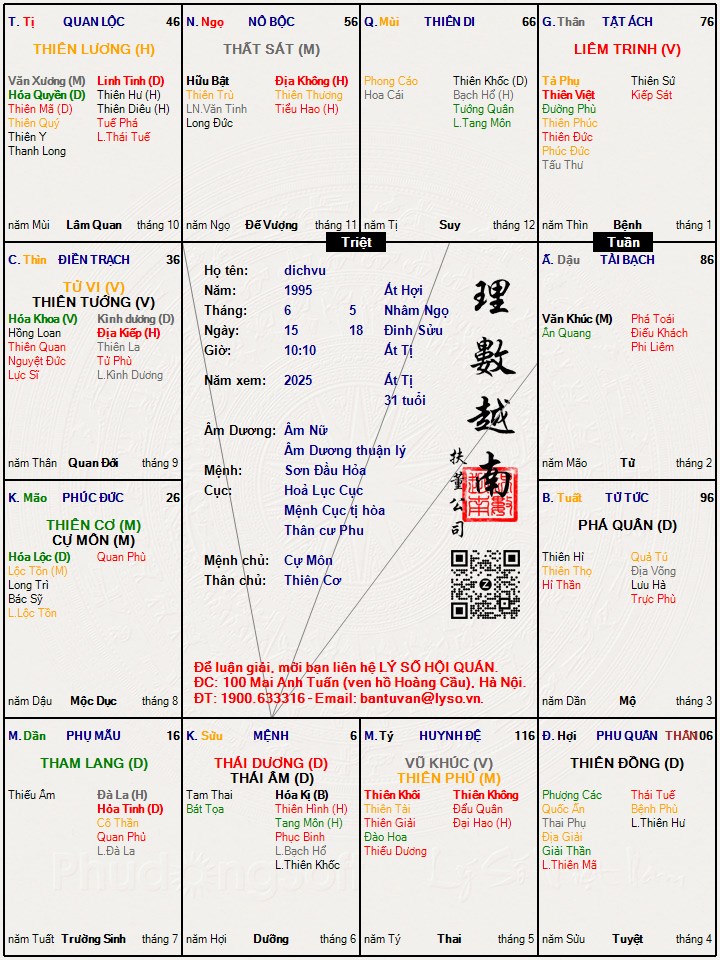 T. Tị QUAN LỘC 46
THIÊN LƯƠNG (H)
Văn Xương (M) Linh Tinh (D)
Hóa Quyền (D) Thiên Hư (H)
Thiên Mã (D) Thiên Diêu (H)
Thiên Quý Tuế Phá
Thiên Y L.Thái Tuế
Thanh Long
năm Mùi Lâm Quan tháng 10
N. Ngọ NÔ BỘC 56
THẤT SÁT (M)
Hữu Bật Địa Không (H)
Thiên Trù Thiên Thương
LN.Văn Tinh Tiểu Hao (H)
Long Đức
năm Ngọ Đế Vượng tháng 11
Q. Mùi THIÊN DI 66
Phong Cáo Thiên Khốc (D)
Hoa Cái Bạch Hổ (H)
Tướng Quân
L.Tang Môn
năm Tị Suy tháng 12
G. Thân TẬT ÁCH 76
LIÊM TRINH (V)
Tả Phụ Thiên Sứ
Thiên Việt Kiếp Sát
Đường Phù
Thiên Phúc
Thiên Đức
Phúc Đức
Tấu Thư
năm Thìn Bệnh tháng 1
Triệt
Tuần
C. Thìn ĐIỀN TRẠCH 36
TỬ VI (V)
THIÊN TƯỚNG (V)
Hóa Khoa (V) Kình dương (D)
Hồng Loan Địa Kiếp (H)
Thiên Quan Thiên La
Nguyệt Đức Tử Phù
Lực Sĩ L.Kình Dương
năm Thân Quan Đới tháng 9
Họ tên: dichvu
Năm: 1995 Ất Hợi
Tháng: 6 5 Nhâm Ngọ
Ngày: 15 18 Đinh Sửu
Giờ: 10:10 Ất Tị
Năm xem: 2025 Ất Tị
31 tuổi
Âm Dương: Âm Nữ
Âm Dương thuận lý
Mệnh: Sơn Đầu Hỏa
Cục: Hoả Lục Cục
Mệnh Cục tị hòa
Thân cư Phu
Mệnh chủ: Cự Môn
Thân chủ: Thiên Cơ
理數越南
扶董公司
Để luận giải, mời bạn liên hệ LÝ SỐ HỘI QUÁN.
ĐC: 100 Mai Anh Tuấn (ven hồ Hoàng Cầu), Hà Nội.
ĐT: 1900.633316 - Email: bantuvan@lyso.vn.
Ấ. Dậu TÀI BẠCH 86
Văn Khúc (M) Phá Toái
Ân Quang Điếu Khách
Phi Liêm
năm Mão Tử tháng 2
K. Mão PHÚC ĐỨC 26
THIÊN CƠ (M)
CỰ MÔN (M)
Hóa Lộc (D) Quan Phù
Lộc Tồn (M)
Long Trì
Bác Sỹ
L.Lộc Tồn
năm Dậu Mộc Dục tháng 8
B. Tuất TỬ TỨC 96
PHÁ QUÂN (D)
Thiên Hỉ Quả Tú
Thiên Thọ Địa Võng
Hỉ Thần Lưu Hà
Trực Phù
năm Dần Mộ tháng 3
M. Dần PHỤ MẪU 16
THAM LANG (D)
Thiếu Âm Đà La (H)
Hỏa Tinh (D)
Cô Thần
Quan Phủ
L.Đà La
năm Tuất Trường Sinh tháng 7
K. Sửu MỆNH 6
THÁI DƯƠNG (D)
THÁI ÂM (D)
Tam Thai Hóa Kị (B)
Bát Tọa Thiên Hình (H)
Tang Môn (H)
Phục Binh
L.Bạch Hổ
L.Thiên Khốc
năm Hợi Dưỡng tháng 6
M. Tý HUYNH ĐỆ 116
VŨ KHÚC (V)
THIÊN PHỦ (M)
Thiên Khôi Thiên Không
Thiên Tài Đẩu Quân
Thiên Giải Đại Hao (H)
Đào Hoa
Thiếu Dương
năm Tý Thai tháng 5
Đ. Hợi PHU QUÂN THÂN 106
THIÊN ĐỒNG (D)
Phượng Các Thái Tuế
Quốc Ấn Bệnh Phù
Thai Phụ L.Thiên Hư
Địa Giải
Giải Thần
L.Thiên Mã
năm Sửu Tuyệt tháng 4